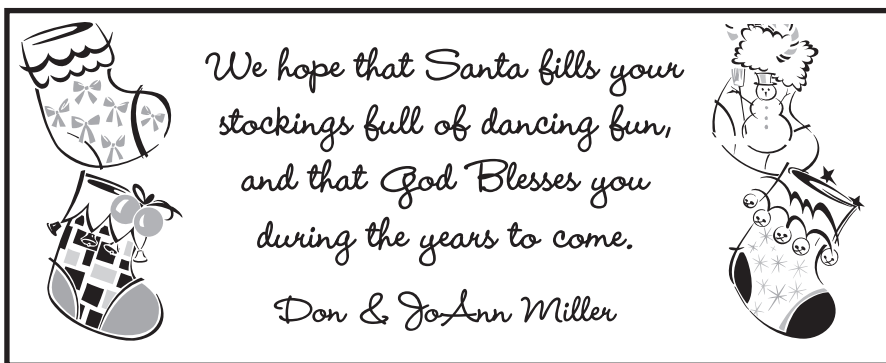 We hope that Santa fills your
stockings full of dancing fun,
and that God Blesses you
during the years to come.
Don & JoAnn Miller